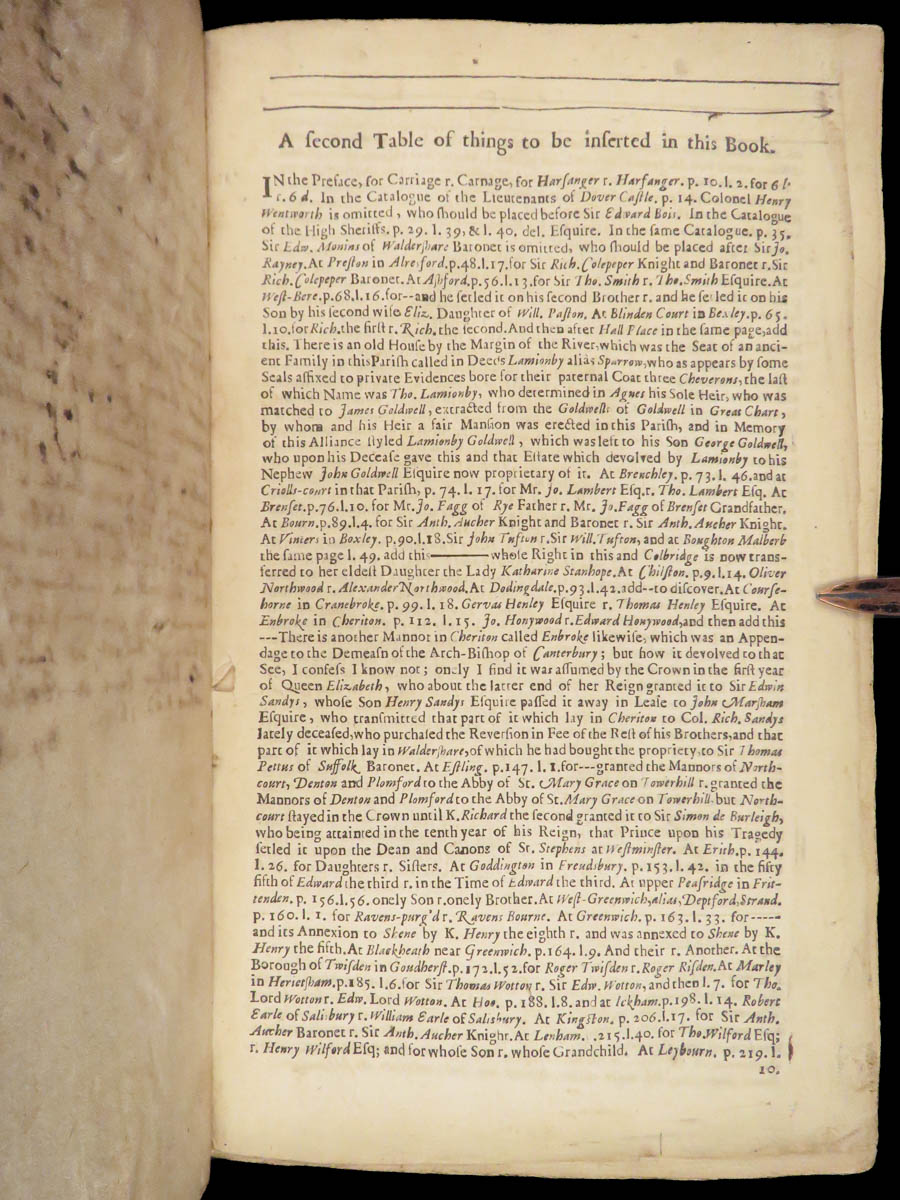 A ſecond Table of things to be inſerted in this Book.
IN the Preface, for Carriage r. Carnage, for Harſanger r. Harfanger. p. 10. l. 2. for 6 l.
r. 6 d. In the Catalogue of the Lieutenants of Dover Caſtle. p. 14. Colonel Henry
Wentworth is omitted, who ſhould be placed before Sir Edward Bois. In the Catalogue
of the High Sheriffs. p. 29. l. 39, & l. 40, del. Eſquire. In the ſame Catalogue. p. 35.
Sir Edw. Monins of Walderſhare Baronet is omitted, who ſhould be placed after Sir Jo.
Rayney. At Preſton in Alresford. p. 48. l. 17. for Sir Rich. Colepeper Knight and Baronet r. Sir
Rich. Colepeper Baronet. At Aſhford. p. 56. l. 13. for Sir Tho. Smith r. Tho. Smith Eſquire. At
Weſt-Bere. p. 68. l. 16. for--and he ſetled it on his ſecond Brother r. and he ſetled it on his
Son by his ſecond wife Eliz. Daughter of Will. Paſton. At Blinden Court in Bexley. p. 65.
l. 10. for Rich. the firſt r. Rich. the ſecond. And then after Hall Place in the ſame page, add
this. There is an old Houſe by the Margin of the River, which was the Seat of an anci-
ent Family in this Pariſh called in Deeds Lamionby alias Sparrow, who as appears by ſome
Seals affixed to private Evidences bore for their paternal Coat three Cheverons, the laſt
of which Name was Tho. Lamionby, who determined in Agnes his Sole Heir, who was
matched to James Goldwell, extracted from the Goldwells of Goldwell in Great Chart,
by whom and his Heir a fair Manſion was erected in this Pariſh, and in Memory
of this Alliance ſtyled Lamionby Goldwell, which was left to his Son George Goldwell,
who upon his Deceaſe gave this and that Eſtate which devolved by Lamionby to his
Nephew John Goldwell Eſquire now proprietary of it. At Brenchley. p. 73. l. 46. and at
Criolls-court in that Pariſh, p. 74. l. 17. for Mr. Jo. Lambert Eſq. r. Tho. Lambert Eſq. At
Brenſet. p. 76. l. 10. for Mr. Jo. Fagg of Rye Father r. Mr. Jo. Fagg of Brenſet Grandfather.
At Bourn. p. 89. l. 4. for Sir Anth. Aucher Knight and Baronet r. Sir Anth. Aucher Knight.
At Vinters in Boxley. p. 90. l. 18. Sir John Tufton r. Sir Will. Tufton, and at Boughton Malherb
the ſame page l. 49. add this——— whoſe Right in this and Colbridge is now trans-
ferred to her eldeſt Daughter the Lady Katharine Stanhope. At Chilſton. p. 9. l. 14. Oliver
Northwood r. Alexander Northwood. At Dodingdale. p. 93. l. 42. add--to diſcover. At Courſe-
horne in Cranebroke. p. 99. l. 18. Gervas Henley Eſquire r. Thomas Henley Eſquire. At
Enbroke in Cheriton. p. 112. l. 15. Jo. Honywood r. Edward Honywood, and then add this
---There is another Mannor in Cheriton called Enbroke likewiſe, which was an Appen-
dage to the Demeaſn of the Arch-Biſhop of Canterbury; but how it devolved to that
See, I confeſs I know not; onely I find it was aſſumed by the Crown in the firſt year
of Queen Elizabeth, who about the latter end of her Reign granted it to Sir Edwin
Sandys, whoſe Son Henry Sandys Eſquire paſſed it away in Leaſe to John Marſham
Eſquire, who tranſmitted that part of it which lay in Cheriton to Col. Rich. Sandys
lately deceaſed, who purchaſed the Reverſion in Fee of the Reſt of his Brothers, and that
part of it which lay in Walderſhare, of which he had bought the propriety, to Sir Thomas
Pettus of Suffolk Baronet. At Eſtling. p. 147. l. 1. for---granted the Mannors of North-
court, Denton and Plomford to the Abby of St. Mary Grace on Towerhill r. granted the
Mannors of Denton and Plomford to the Abby of St. Mary Grace on Towerhill but North-
court ſtayed in the Crown until K. Richard the ſecond granted it to Sir Simon de Burleigh,
who being attainted in the tenth year of his Reign, that Prince upon his Tragedy
ſetled it upon the Dean and Canons of St. Stephens at Weſtminſter. At Erith. p. 144.
l. 26. for Daughters r. Siſters. At Goddington in Freudsbury. p. 153. l. 42. in the fifty
fifth of Edward the third r. in the Time of Edward the third. At upper Peaſridge in Frit-
tenden. p. 156. l. 56. onely Son r. onely Brother. At Weſt-Greenwich, alias, Deptford, Strand.
p. 160. l. 1. for Ravens-purg'd r. Ravens Bourne. At Greenwich. p. 163. l. 33. for-----
and its Annexion to Shene by K. Henry the eighth r. and was annexed to Shene by K.
Henry the fifth. At Blackheath near Greenwich. p. 164. l. 9. And their r. Another. At the
Borough of Twiſden in Goudherſt. p. 172. l. 52. for Roger Twiſden r. Roger Riſden. At Marley
in Herietſham. p. 185. l. 6. for Sir Thomas Wotton r. Sir Edw. Wotton, and then l. 7. for Tho.
Lord Wotton r. Edw. Lord Wotton. At Hoo. p. 188. l. 8. and at Ickham. p. 198. l. 14. Robert
Earle of Salisbury r. William Earle of Salisbury. At Kingſton. p. 206. l. 17. for Sir Anth.
Aucher Baronet r. Sir Anth. Aucher Knight. At Lenham. .215. l. 40. for Tho. Wilford Eſq;
r. Henry Wilford Eſq; and for whoſe Son r. whoſe Grandchild. At Leybourn. p. 219. l.
10.